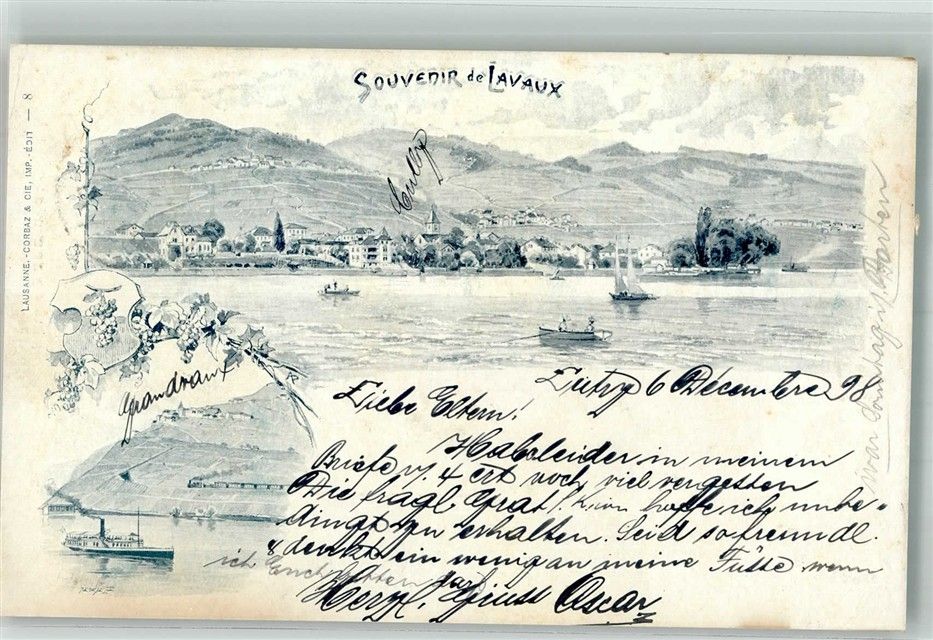 SOUVENIR de LAVAUX
LAUSANNE.-CORBAZ & CIE, IMP. ÉDIT. — 8
Cully
Grandvaux
Lutry 6 Décembre 98
Liebe Eltern!
Habe leider in meinem
Briefe v. 4 crt noch viel vergessen
Die fragl. hoffe ich unbe-
dingt zu erhalten. Seid so freundl.
& denkt ein wenig an meine Füsse wenn
ich Euch bitten darf
Herzl. Gruss Oscar